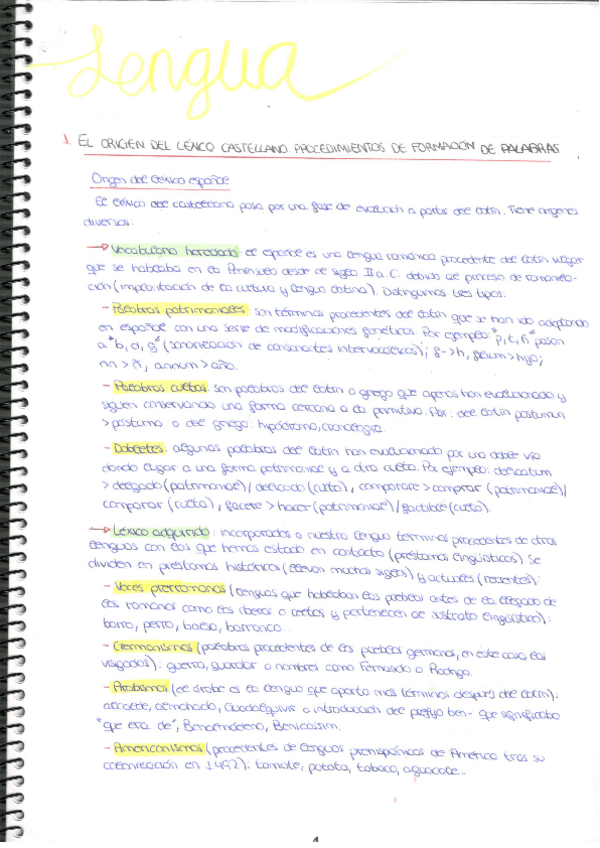 Lengua
1. EL ORIGEN DEL LÉXICO CASTELLANO. PROCEDIMIENTOS DE FORMACIÓN DE PALABRAS
Origen del léxico español
El léxico del castellano pasa por una fase de evolución a partir del latín. Tiene orígenes
diversos:
→ Vocabulario heredado: el español es una lengua románica procedente del latín vulgar
que se hablaba en la Península desde el siglo II a.C. debido al proceso de romaniza-
ción (implantación de la cultura y lengua latina). Distinguimos tres tipos:
- Palabras patrimoniales: son términos procedentes del latín que se han ido adaptando
en español con una serie de modificaciones fonéticas. Por ejemplo: "p, t, k" pasan
a "b, d, g" (sonorización de consonantes intervocálicas); f->h, filium > hijo;
nn > ñ, annum > año.
- Palabras cultas: son palabras del latín o griego que apenas han evolucionado y
siguen conservando una forma cercana a la primitiva. Por: del latín postumum
> póstumo o del griego: hipódromo, cronología.
- Dobletes: algunas palabras del latín han evolucionado por una doble vía
dando lugar a una forma patrimonial y a otra culta. Por ejemplo: delicatum
> delgado (patrimonial) / delicado (culto), comparare > comprar (patrimonial) /
comparar (culto), facere > hacer (patrimonial) / factible (culto).
→ Léxico adquirido: incorporados a nuestra lengua términos procedentes de otras
lenguas con las que hemos estado en contacto (préstamos lingüísticos). Se
dividen en préstamos históricos (llevan muchos siglos) y actuales (recientes):
- Voces prerromanas (lenguas que hablaban los pueblos antes de la llegada de
los romanos como los íberos o celtas y pertenecen al sustrato lingüístico):
barro, perro, balsa, barranco...
- Germanismos (palabras procedentes de los pueblos germanos, en este caso, los
visigodos): guerra, guardar o nombres como Fernando o Rodrigo.
- Arabismos (el árabe es la lengua que aporta más términos después del latín):
alcalde, almohada, Guadalquivir o introducción del prefijo ben- que significaba
"que era de", Benalmádena, Benicassim.
- Americanismos (procedentes de lenguas prehispánicas de América tras su
colonización en 1492): tomate, patata, tabaco, aguacate...